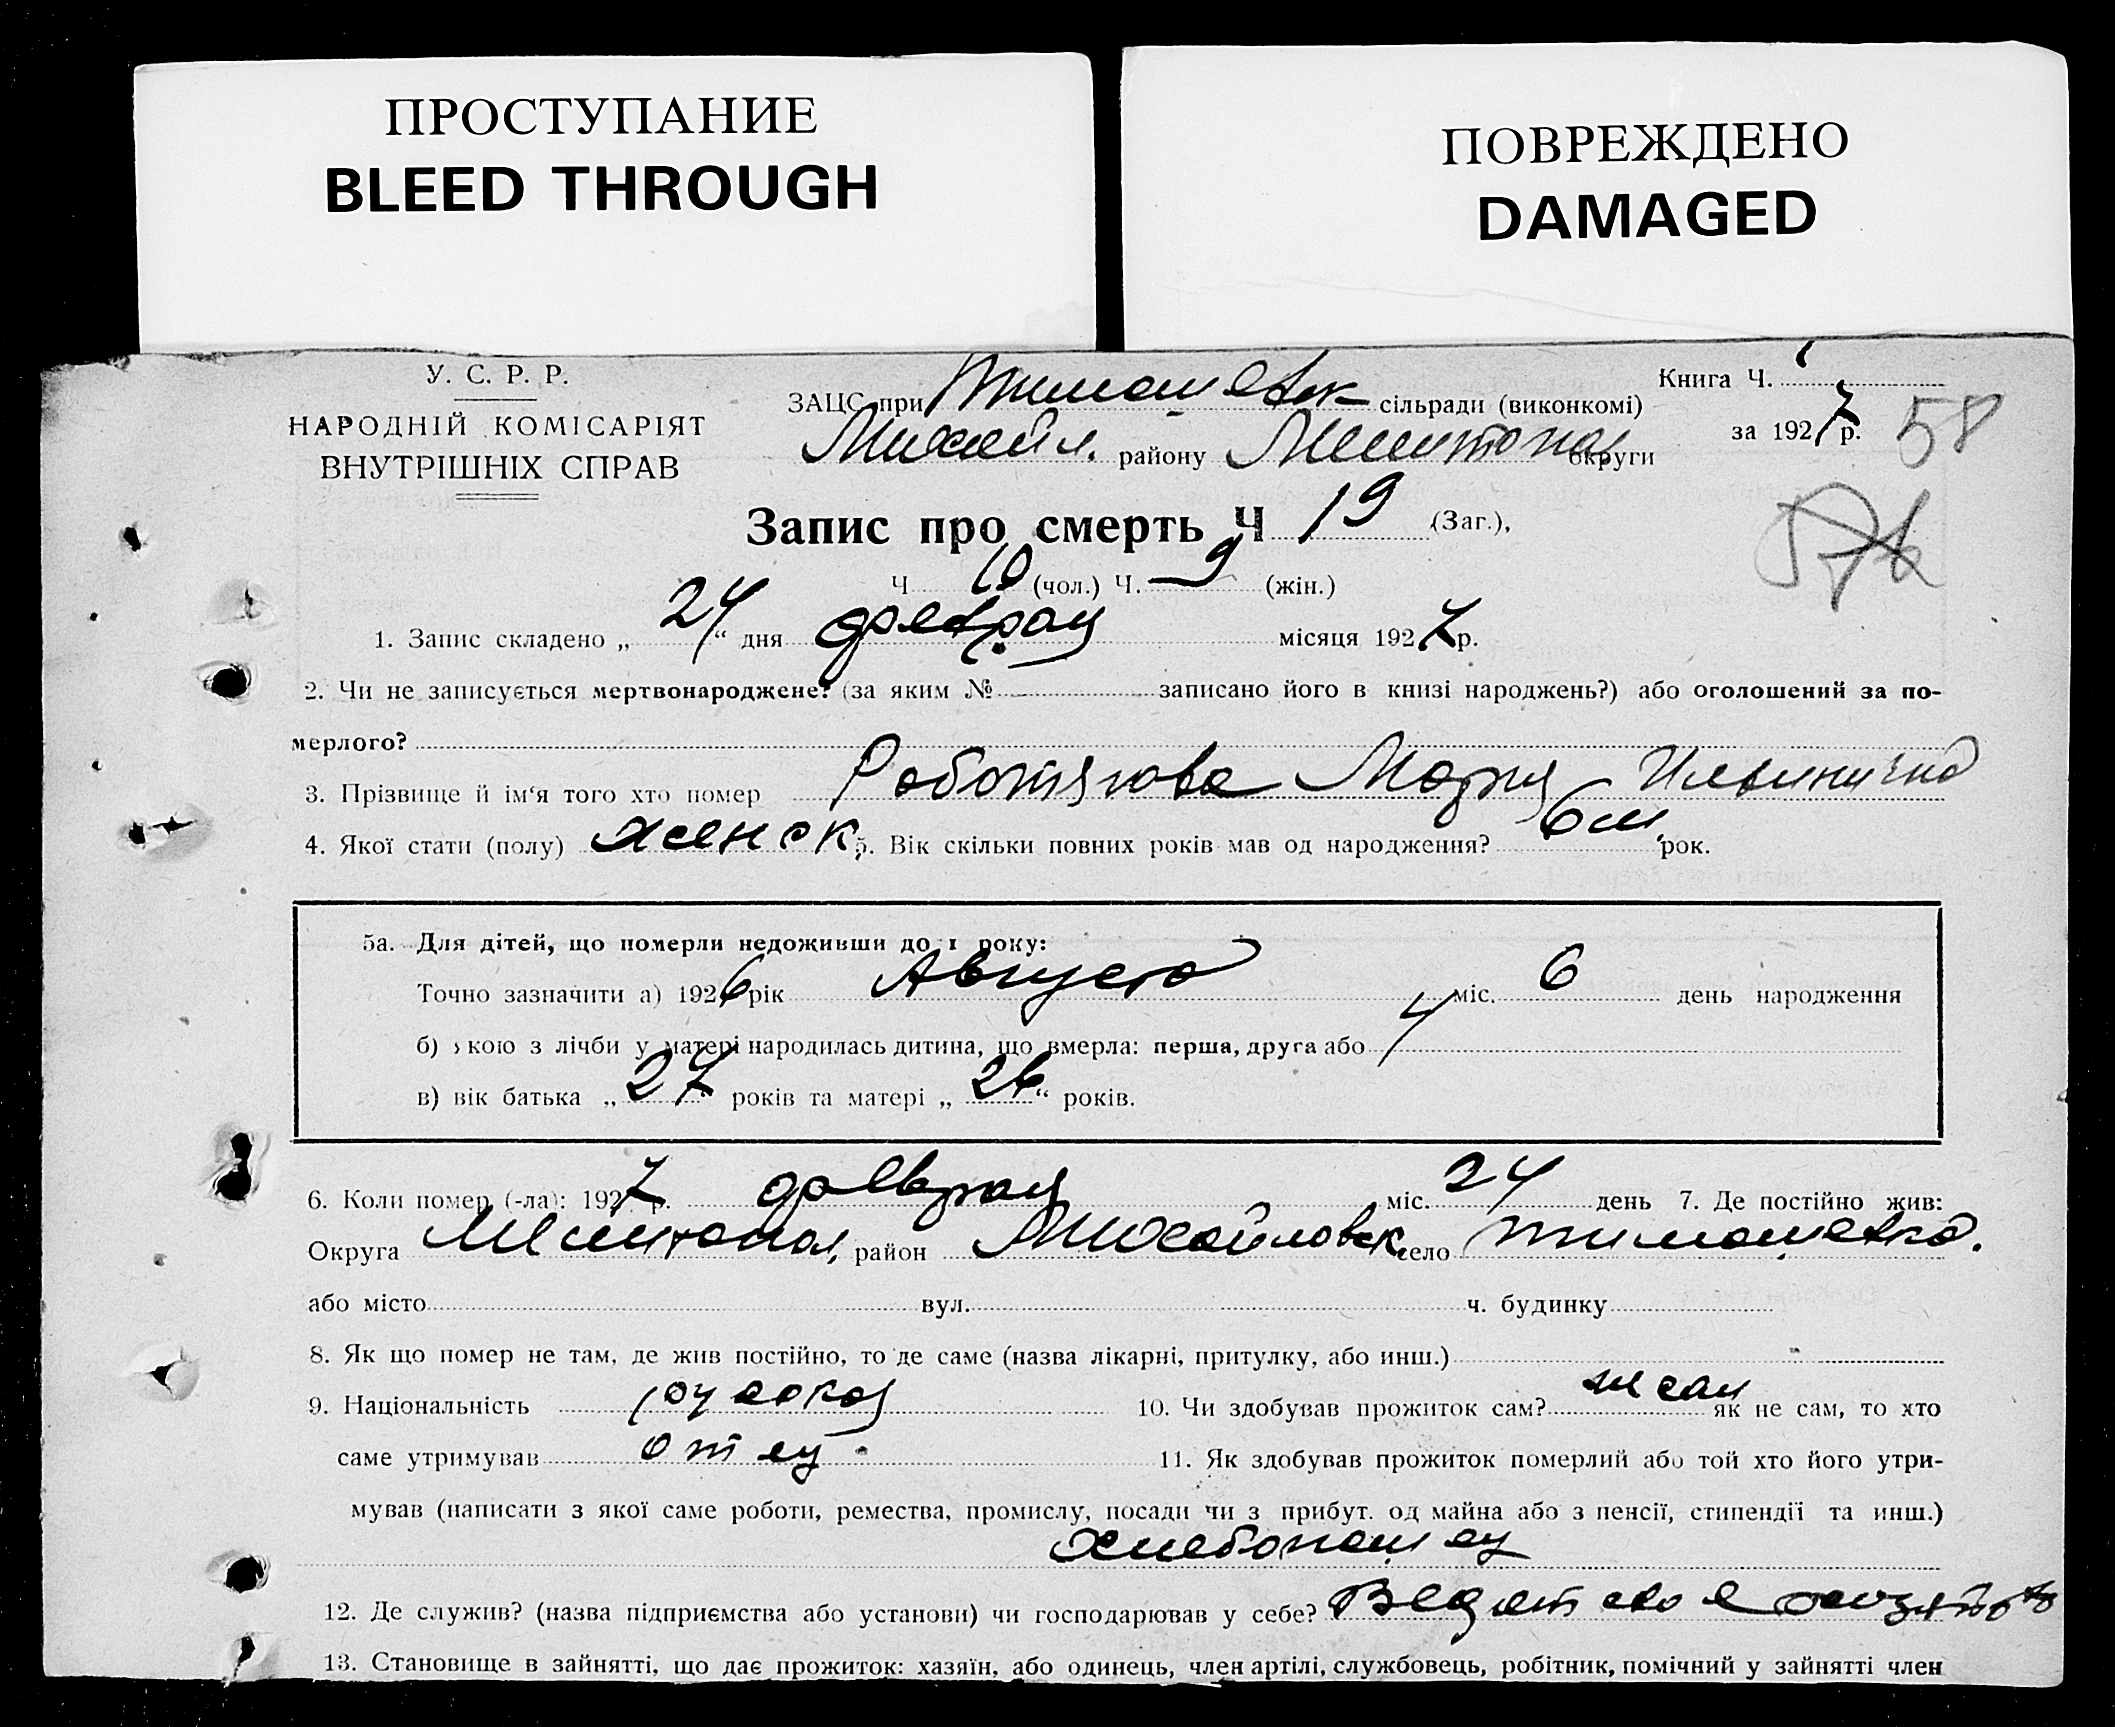 ПРОСТУПАНИЕ
BLEED THROUGH
ПОВРЕЖДЕНО
DAMAGED
У. С. Р. Р.
НАРОДНІЙ КОМІСАРІЯТ
ВНУТРІШНІХ СПРАВ
Книга Ч.
ЗАЦС при Тимошевск сільради (виконкомі)
за 1927 р. 58
Михайл. району Мелитопол округи
Запис про смерть Ч 19 (Заг.),
Ч 10 (чол.) Ч. 9 (жін.)
1. Запис складено „24“ дня февраля місяця 1927 р.
2. Чи не записується мертвонароджене? (за яким № записано його в книзі народжень?) або оголошений за по-
мерлого?
3. Прізвище й ім‘я того хто помер Работягова Мария Ильинична
4. Якої стати (полу) женск. 5. Вік скільки повних років мав од народження? 6 м. рок.
5а. Для дітей, що померли недоживши до 1 року:
Точно зазначити а) 1926 рік Августа міс. 6 день народження
б) якою з лічби у матері народилась дитина, що вмерла: перша, друга або 4
в) вік батька „27“ років та матері „26“ років.
6. Коли помер (-ла): 1927 р. февраля міс. 24 день 7. Де постійно жив:
Округа Мелитопол, район Михайловск село Тимошевка.
або місто вул. ч. будинку
8. Як що помер не там, де жив постійно, то де саме (назва лікарні, притулку, або инш.)
9. Національність русская 10. Чи здобував прожиток сам? не сам як не сам, то хто
саме утримував отец 11. Як здобував прожиток померлий або той хто його утри-
мував (написати з якої саме роботи, ремества, промислу, посади чи з прибут. од майна або з пенсії, стипендії та инш.)
хлебопашец
12. Де служив? (назва підприємства або установи) чи господарював у себе? Ведет свое хозяйство
13. Становище в зайнятті, що дає прожиток: хазяїн, або одинець, член артілі, службовець, робітник, помічний у зайнятті член